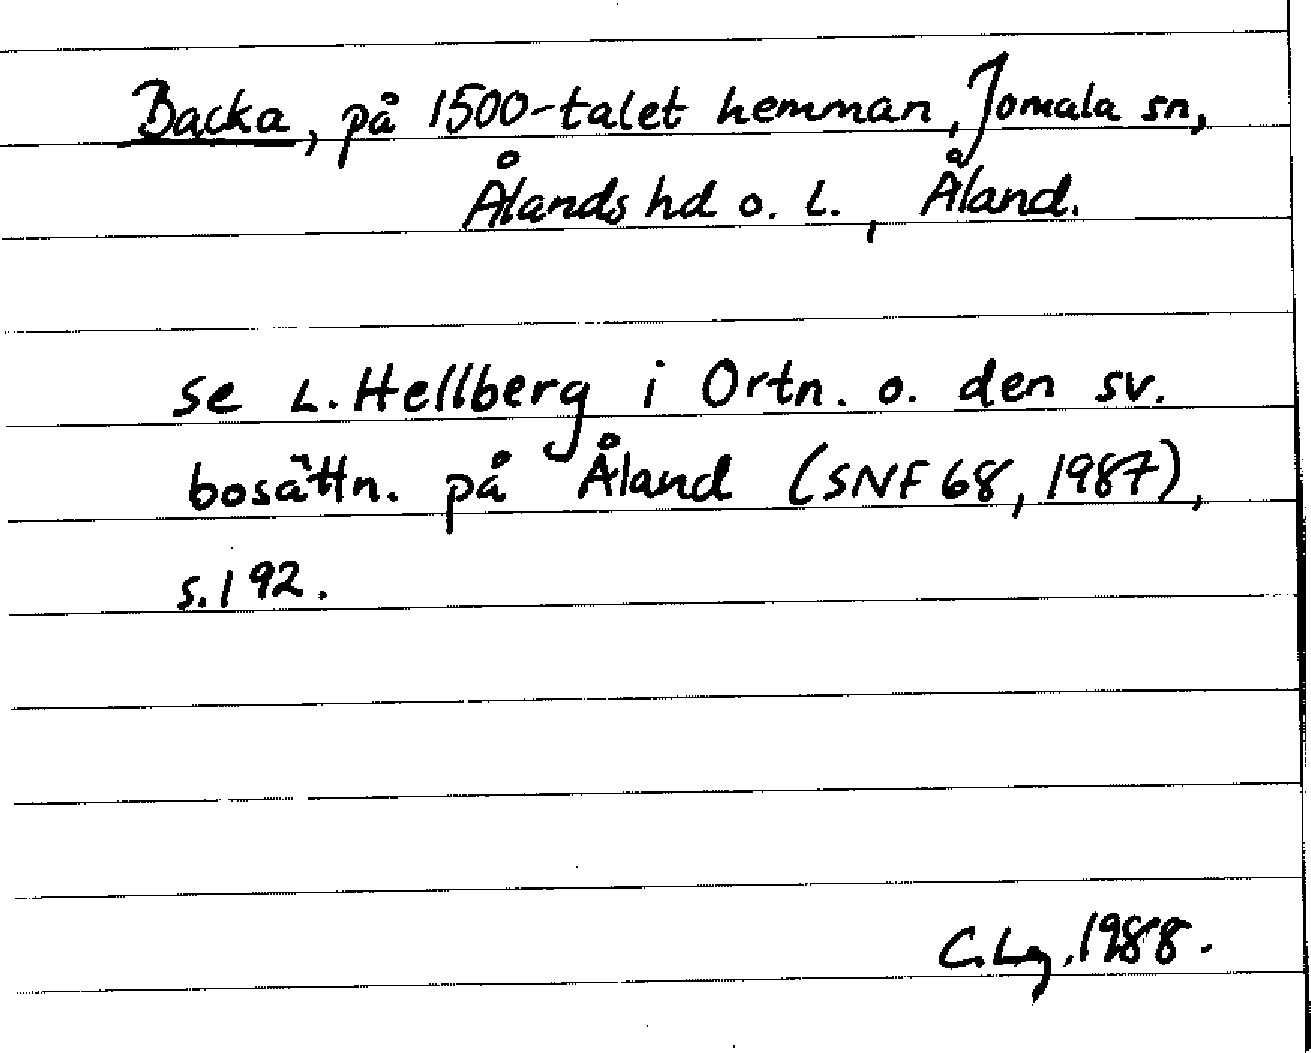 Backa, på 1500-talet hemman, Jomala sn,
Ålands hd o. l., Åland.
se L. Hellberg i Ortn. o. den sv.
bosättn. på Åland (SNF 68, 1987),
s. 192.
C. Lg, 1988.